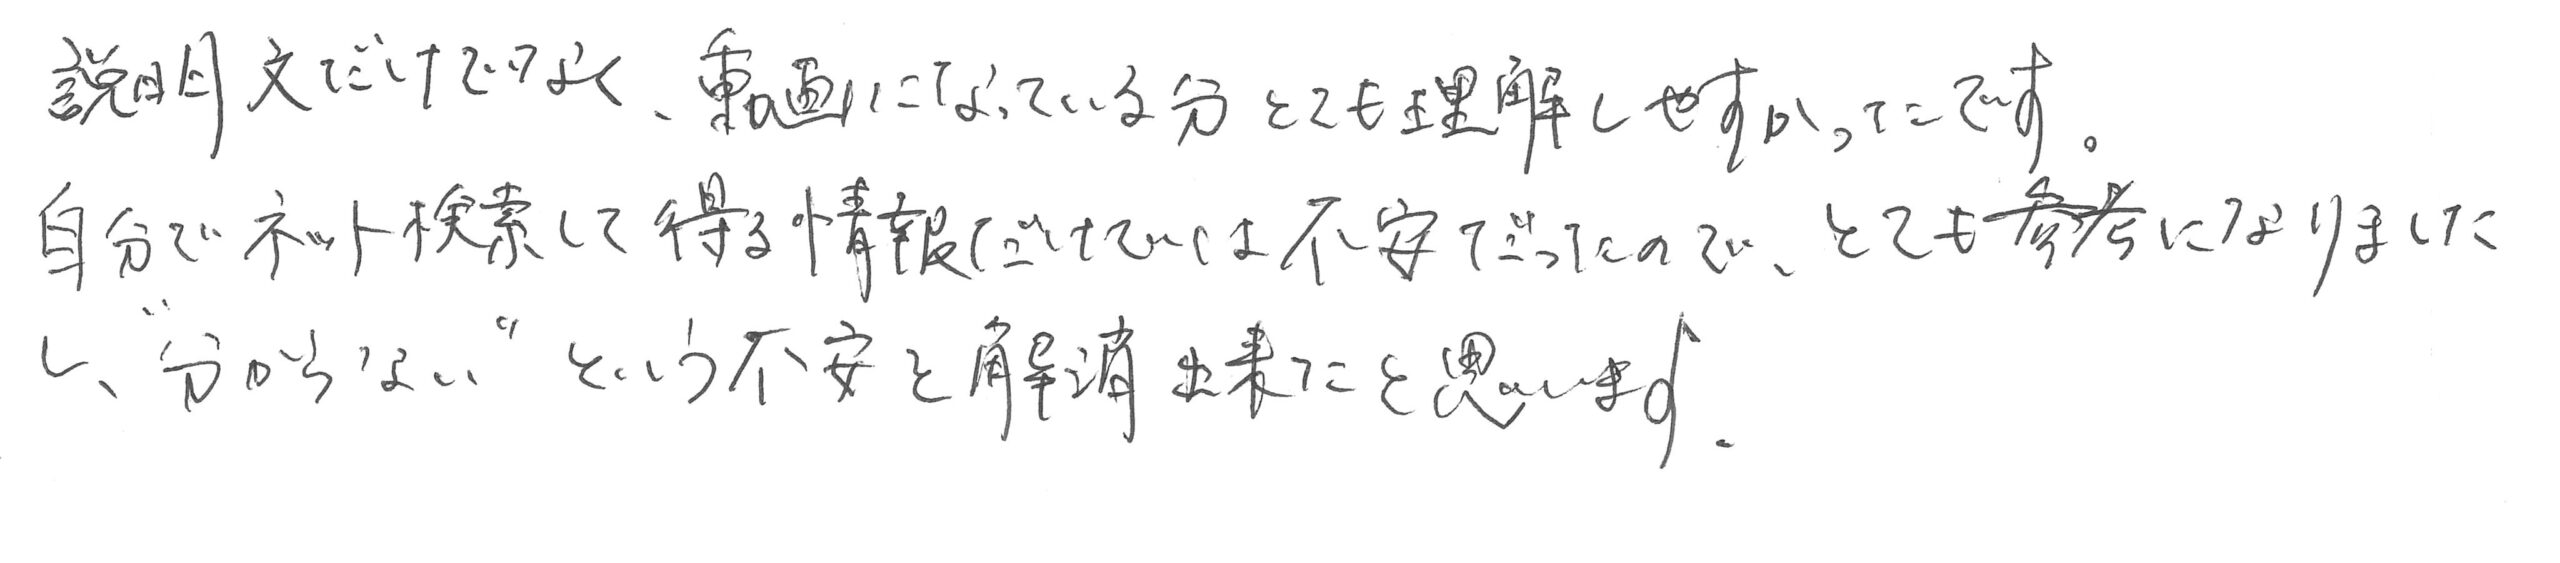 説明文だけでなく、動画になっている分とても理解しやすかったです。
自分でネット検索して得る情報だけでは不安だったので、とても参考になりました
し、"分からない"という不安を解消出来たと思います.